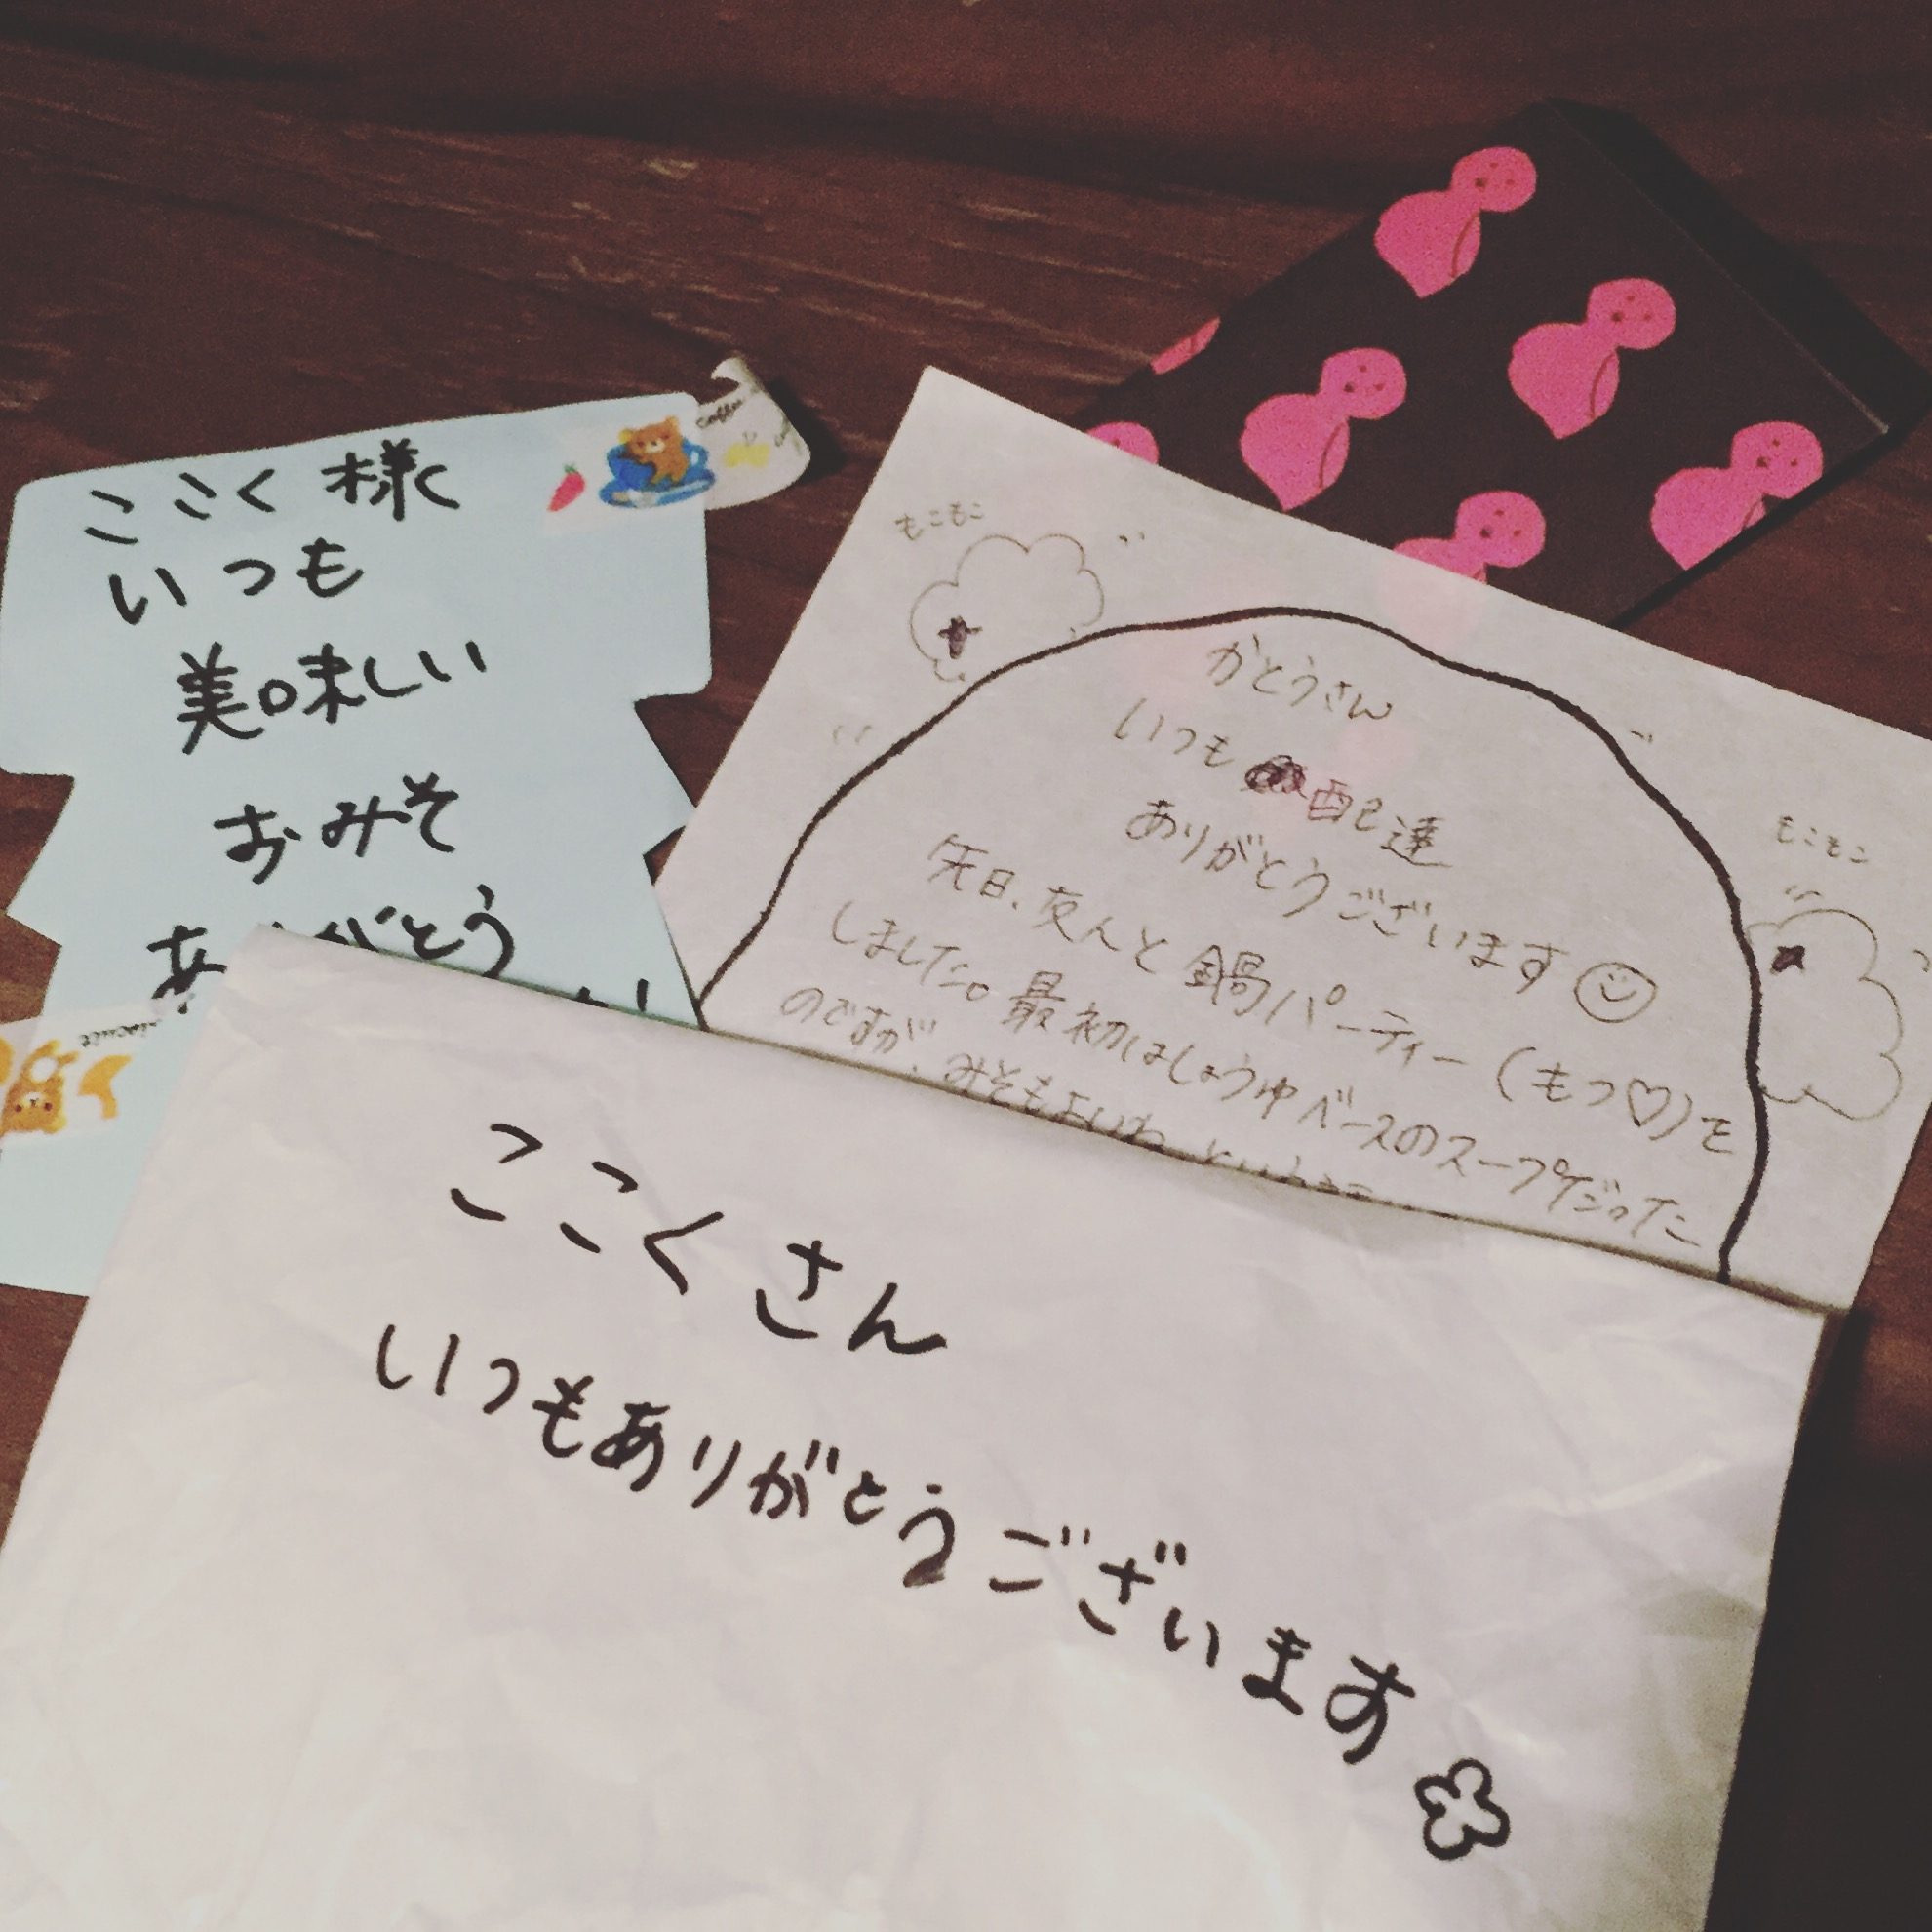 ここく様へ
いつも
美味しい
おみそ
coffee
biscuit
もこもこ
かとうさん
いつも 配達
ありがとうございます
先日、友人と鍋パーティー(もつ♡)を
しました。最初はしょうゆベースのスープだった
のですが、みそもよいね
もこもこ
ここくさん
いつもありがとうございます